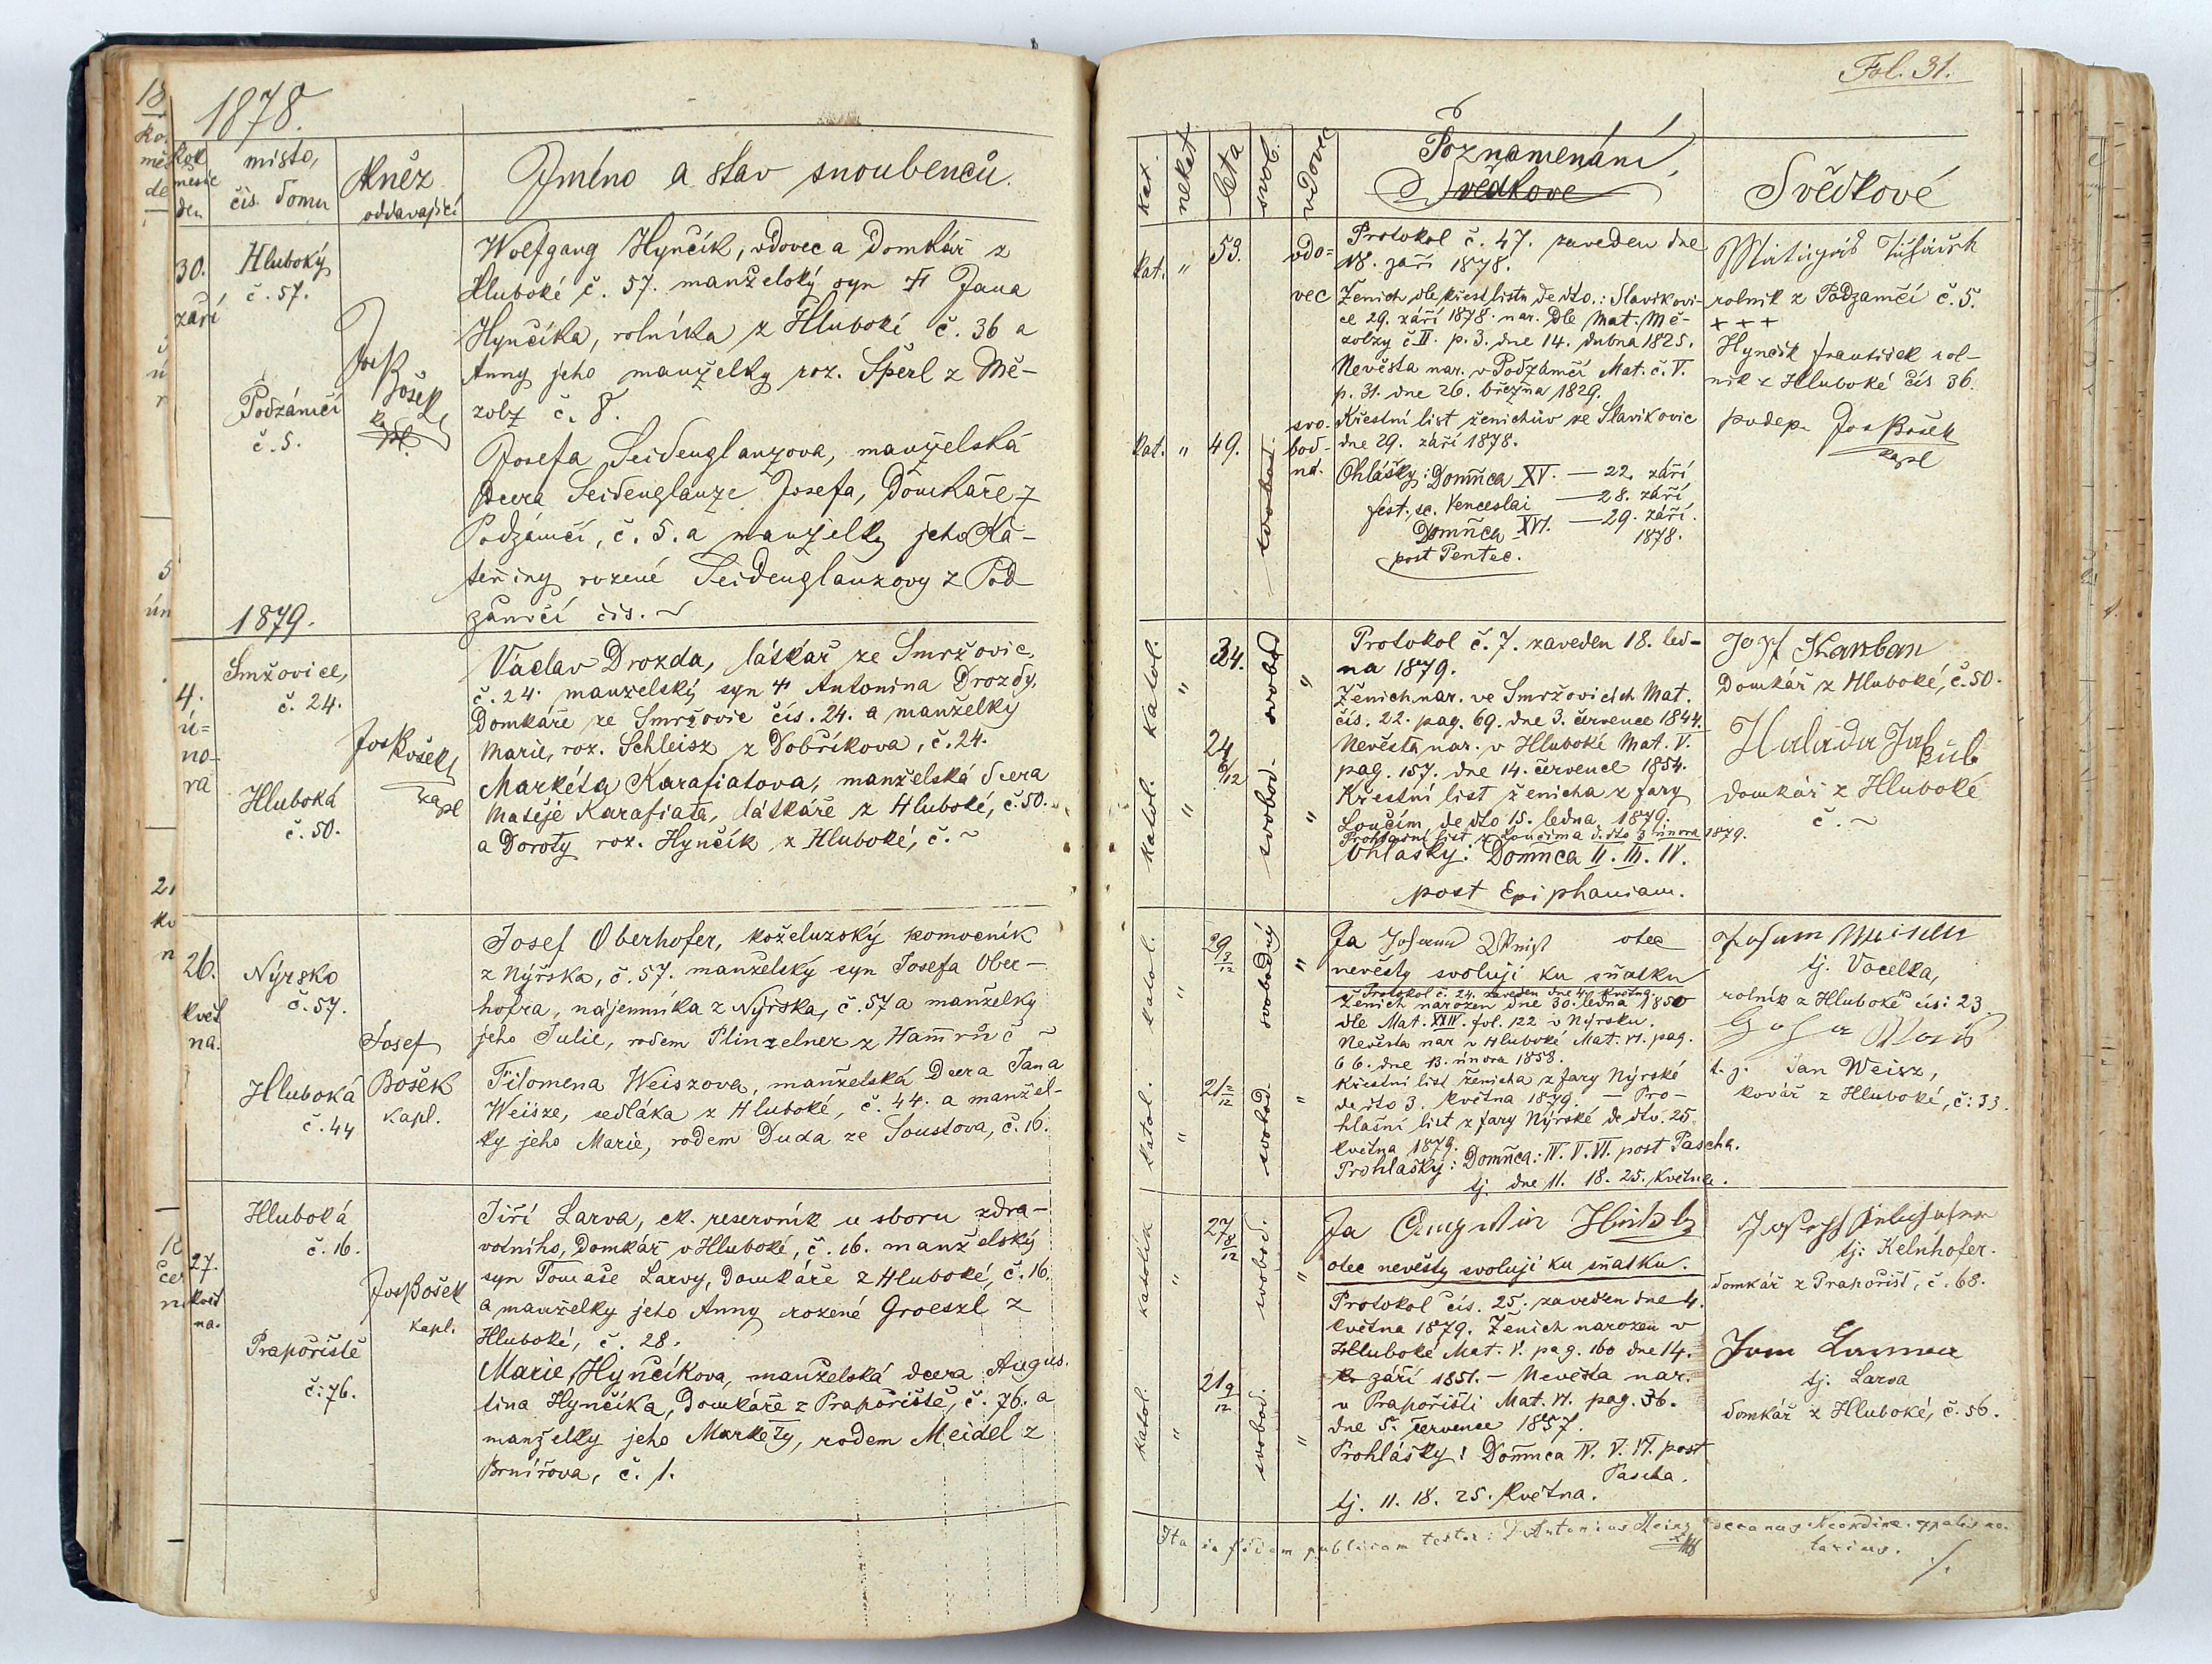 1878.
Rok měsíc den
místo, čís. domu
Kněz oddávající
Jméno a stav snoubenců.
30. září
Hluboký
č. 57.
Podzámčí
č. 5.
Jos Bošek
kapl.
Wolfgang Hynčík, vdovec a domkář z
Hluboké č. 57. manželský syn Jana
Hynčíka, rolníka z Hluboké č. 36 a
Anny jeho manželky roz. Šperl z Mě-
zolz č. 8.
Josefa Seidenglanzova, manželská
dcera Seidenglanze Josefa, domkáře z
Podzámčí, č. 5. a manželky jeho Ka-
teřiny rozené Seidenglanzovy z Pod
zámčí čís. ~
1879.
4. ú=
no-
ra
Smržovice,
č. 24.
Hluboká
č. 50.
Jos Bošek
kapl
Václav Drozda, látkář ze Smržovic,
č. 24. manželský syn Antonína Drozdy,
domkáře ze Smržovic čís. 24. a manželky
Marie, roz. Schleisz z Dobříkova, č. 24.
Markéta Karafiatova, manželská dcera
Matěje Karafiata, látkáře z Hluboké, č. 50.
a Doroty roz. Hynčík z Hluboké, č. ~
26.
květ
na.
Nýrsko
č. 57.
Hluboká
č. 44
Josef
Bošek
kapl.
Josef Oberhofer, koželuzský pomocník
z Nýrska, č. 57. manželský syn Josefa Ober-
hofra, nájemníka z Nýrska, č. 57 a manželky
jeho Julie, rodem Plinzelner z Hamrů č ~
Filomena Weiszova, manželská dcera Jana
Weisze, sedláka z Hluboké, č. 44. a manžel-
ky jeho Marie, rodem Duda ze Soustova, č. 16.
27.
květ
na.
Hluboká
č. 16.
Prapořiště
č: 76.
Jos Bošek
kapl.
Jiří Larva, ck. reservník u sboru zdra-
votního, domkář v Hluboké, č. 16. manželský
syn Tomáše Larvy, domkáře z Hluboké, č. 16.
a manželky jeho Anny rozené Groeszl z
Hluboké, č. 28.
Marie Hynčíkova, manželská dcera Augus.
tina Hynčíka, domkáře z Prapořiště, č. 76. a
manželky jeho Markéty, rodem Meidel z
Brnířova, č. 1.
Fol. 31.
kat.
nekat
léta
svob.
vdovec
Poznamenání,
Svědkové
Svědkové
kat. "
53.
vdo=
vec
Protokol č. 47. zaveden dne
18. září 1878.
Ženich dle křest listu de dto.: Slavikovi-
ce 29. září 1878. nar. dle Mat. Mě-
zolzy č. II. p. 3. dne 14. dubna 1825.
Nevěsta nar. v Podzámčí Mat. č. V.
p. 31. dne 26. března 1829.
Křestní list ženichův ze Slavikovic
dne 29. září 1878.
kat. " 49.
svo-
bod-
ná.
Ohlášky: Domňca XV. — 22. září
fest. sc. Venceslai — 28. září
Domňca XVI. — 29. září.
1878.
post Pentec.
rolník z Podzamčí č. 5.
+ + +
Hynčík František rol-
ník z Hluboké čís 36.
podep. Jos Bošek
kapl
katol. " 34. svobod "
Protokol č. 7. zaveden 18. led-
na 1879.
Ženich nar. ve Smržovicích Mat.
čís. 22. pag. 69. dne 3. července 1844.
Nevěsta nar. v Hluboké Mat. V.
pag. 157. dne 14. července 1854.
Křestní list ženicha z fary
Loučím de dto 15. ledna 1879.
Prohlašní list z Loučima d. dto 3 února 1879.
Ohlášky: Domňca II. III. IV.
post Epiphaniam.
katol. " 24 6/12 svobod. "
Josef Karban
Domkář z Hluboké, č. 50.
Halada Jakub
domkář z Hluboké
č. ~
katol. " 29 3/12 svobodný "
Ja Johann Weiss otec
nevěsty svoluji ku sňatku
Protokol č. 24. zaveden dne 4. května
Ženich narozen dne 30. ledna 1850
dle Mat. XXIV. fol. 122 v Nýrsku.
Nevěsta nar v Hluboké Mat. VI. pag.
66. dne 13. února 1858.
Křestní list ženicha z fary Nýrské
de dto 3. května 1879. — Pro-
hlašní list z fary Nýrské de dto. 25.
května 1879.
Prohlášky: Domňca: IV. V. VI. post Pascha.
tj. dne 11. 18. 25. května.
katol. " 21 2/12 svobod. "
tj. Vacelka,
rolník z Hluboké čís: 23.
t. j. Jan Weisz,
kovář z Hluboké, č: 33.
katolík " 27 8/12 svobod. "
Ja Augustin
otec nevěsty svoluji ku sňatku.
Protokol čís. 25. zaveden dne 4.
května 1879. Ženich narozen v
Hluboké Mat. V. pag. 160 dne 14.
září 1851. — Nevěsta nar.
v Prapořišti Mat. VI. pag. 36.
dne 5. července 1857.
Prohlášky: Domňca IV. V. VI. post
Pascha.
tj. 11. 18. 25. května.
katol. " 21 9/12 svobod. "
tj: Kelnhofer.
domkář z Prapořišť, č. 68.
tj. Larva
domkář z Hluboké, č. 56.
Ita in fidem publicam testor: P. Antonius